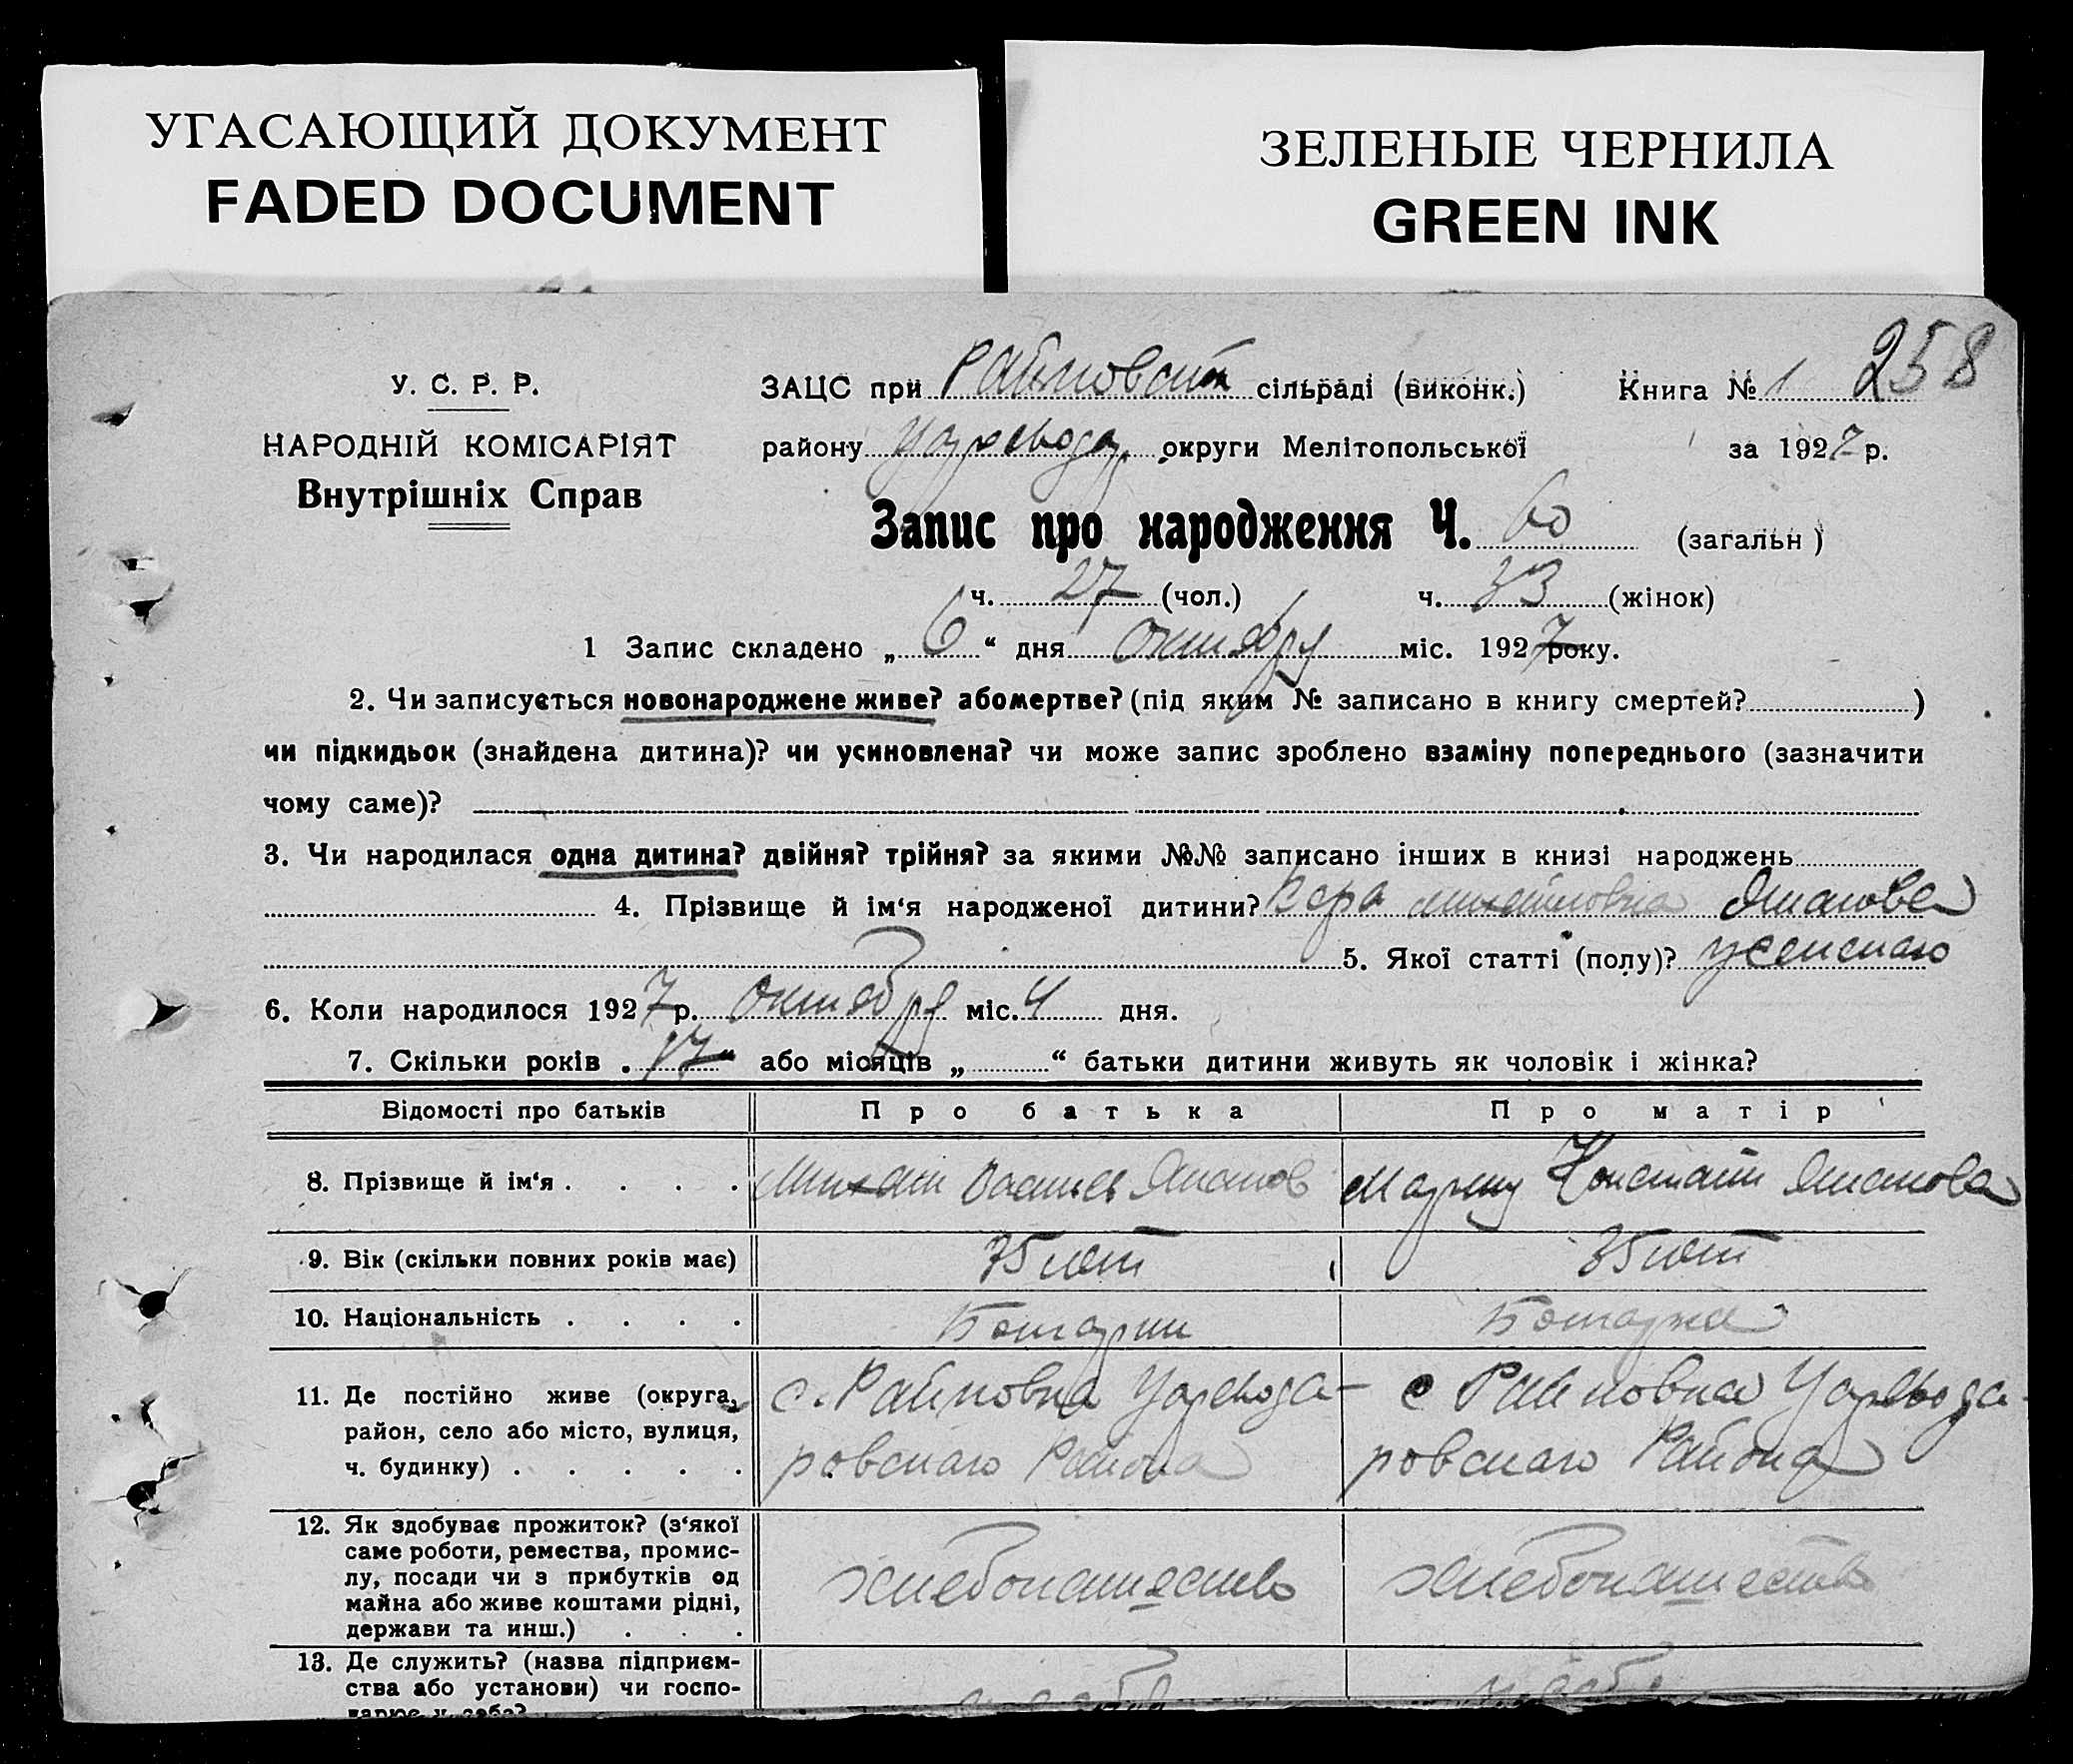 УГАСАЮЩИЙ ДОКУМЕНТ
FADED DOCUMENT
ЗЕЛЕНЫЕ ЧЕРНИЛА
GREEN INK
258
У. С. Р. Р.
НАРОДНІЙ КОМІСАРІЯТ
Внутрішніх Справ
ЗАЦС при Райновск сільраді (виконк.) Книга № 1
району Царевода округи Мелітопольської за 1927 р.
Запис про народження Ч. 60 (загальн)
ч. 27 (чол.) ч. 33 (жінок)
1 Запис складено „ 6 “ дня октября міс. 1927 року.
2. Чи записується новонароджене живе? або мертве? (під яким № записано в книгу смертей? )
чи підкидьок (знайдена дитина)? чи усиновлена? чи може запис зроблено взаміну попереднього (зазначити
чому саме)?
3. Чи народилася одна дитина? двійня? трійня? за якими №№ записано інших в книзі народжень
4. Прізвище й ім‘я народженої дитини? Вера михайловна
5. Якої статті (полу)? женскаго
6. Коли народилося 1927 р. октября міс. 4 дня.
7. Скільки років „ 17 “ або місяців „ “ батьки дитини живуть як чоловік і жінка?
Відомості про батьків Про батька Про матір
8. Прізвище й ім‘я . . . . Михаил Василев Констант
9. Вік (скільки повних років має) 35 лет 35 лет
10. Національність . . . . Болгарин Болгарка
11. Де постійно живе (округа, район, село або місто, вулиця, ч. будинку) . . . . .
с. Райновка Царевода-
ровскаго Района
с Райновка Царевода-
ровскаго Района
12. Як здобуває прожиток? (з‘якої
саме роботи, ремества, промис-
лу, посади чи з прибутків од
майна або живе коштами рідні,
держави та инш.) . . .
хлебопашество хлебопашество
13. Де служить? (назва підприєм-
ства або установи) чи госпо-
дарює у себе?